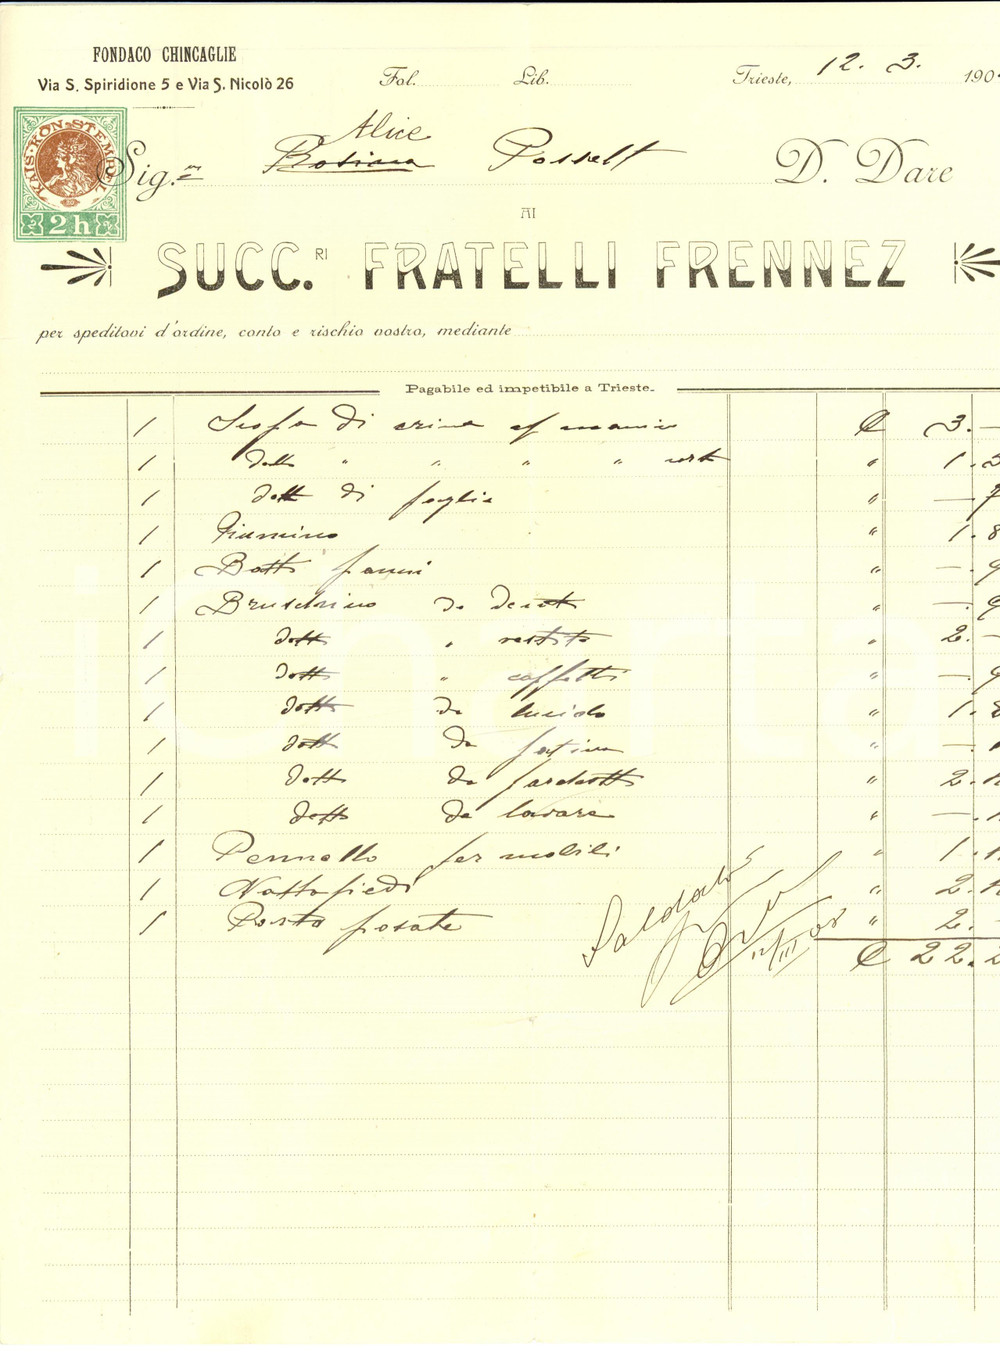 FONDACO CHINCAGLIE
Via S. Spiridione 5 e Via S. Nicolò 26
Fol. Lib. Trieste, 12. 3. 190
KAIS·KÖN·STEMPEL
2 h
Alice
Sig.ra Posselt D. Dare
AI
SUCC.RI FRATELLI FRENNEZ
per speditovi d'ordine, conto e rischio vostro, mediante
Pagabile ed impetibile a Trieste.
1 Scopa di crine 3. —
1 dett " " " " 1.
1 dett di foglia " —
1 Piumino " 1. 8
1 Batti panni " —. 9
1 Bruschino da denti " —. 9
1 dett " vestito " 2. —
1 dett " " —. 9
1 dett da lucido " 1. 8
1 dett da " —.
1 dett da " 2.
1 dett da lavare " —.
1 Pennello per mobili " 1.
1 Nettapiedi " 2.
1 Porta posate " 2.
Saldato
12/III 08
22. 2